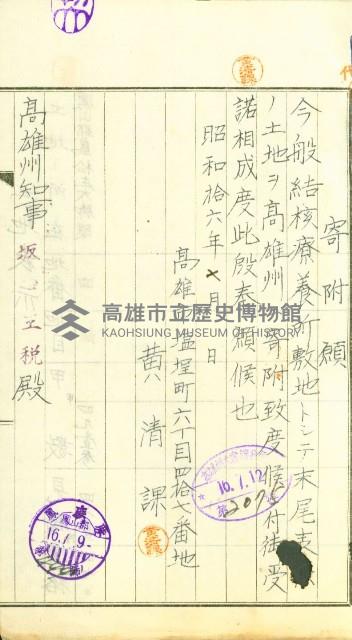 寄附願
今般結核療養所敷地トシテ末尾表
ノ土地ヲ高雄州ニ寄附致度候ニ付御受
諾相成度此段奉願候也
昭和拾六年 月 日
高雄市塩埕町六丁目四拾七番地
黄清課
高雄州知事 坂口主税殿
高雄市立歷史博物館
KAOHSIUNG MUSEUM OF HISTORY
16.7.12
16.7.9